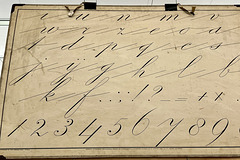 i u n m v
w r z e o a
t d p q c s
j y g h l b
k f . , ; : ! ? – = + x
1 2 3 4 5 6 7 8 9